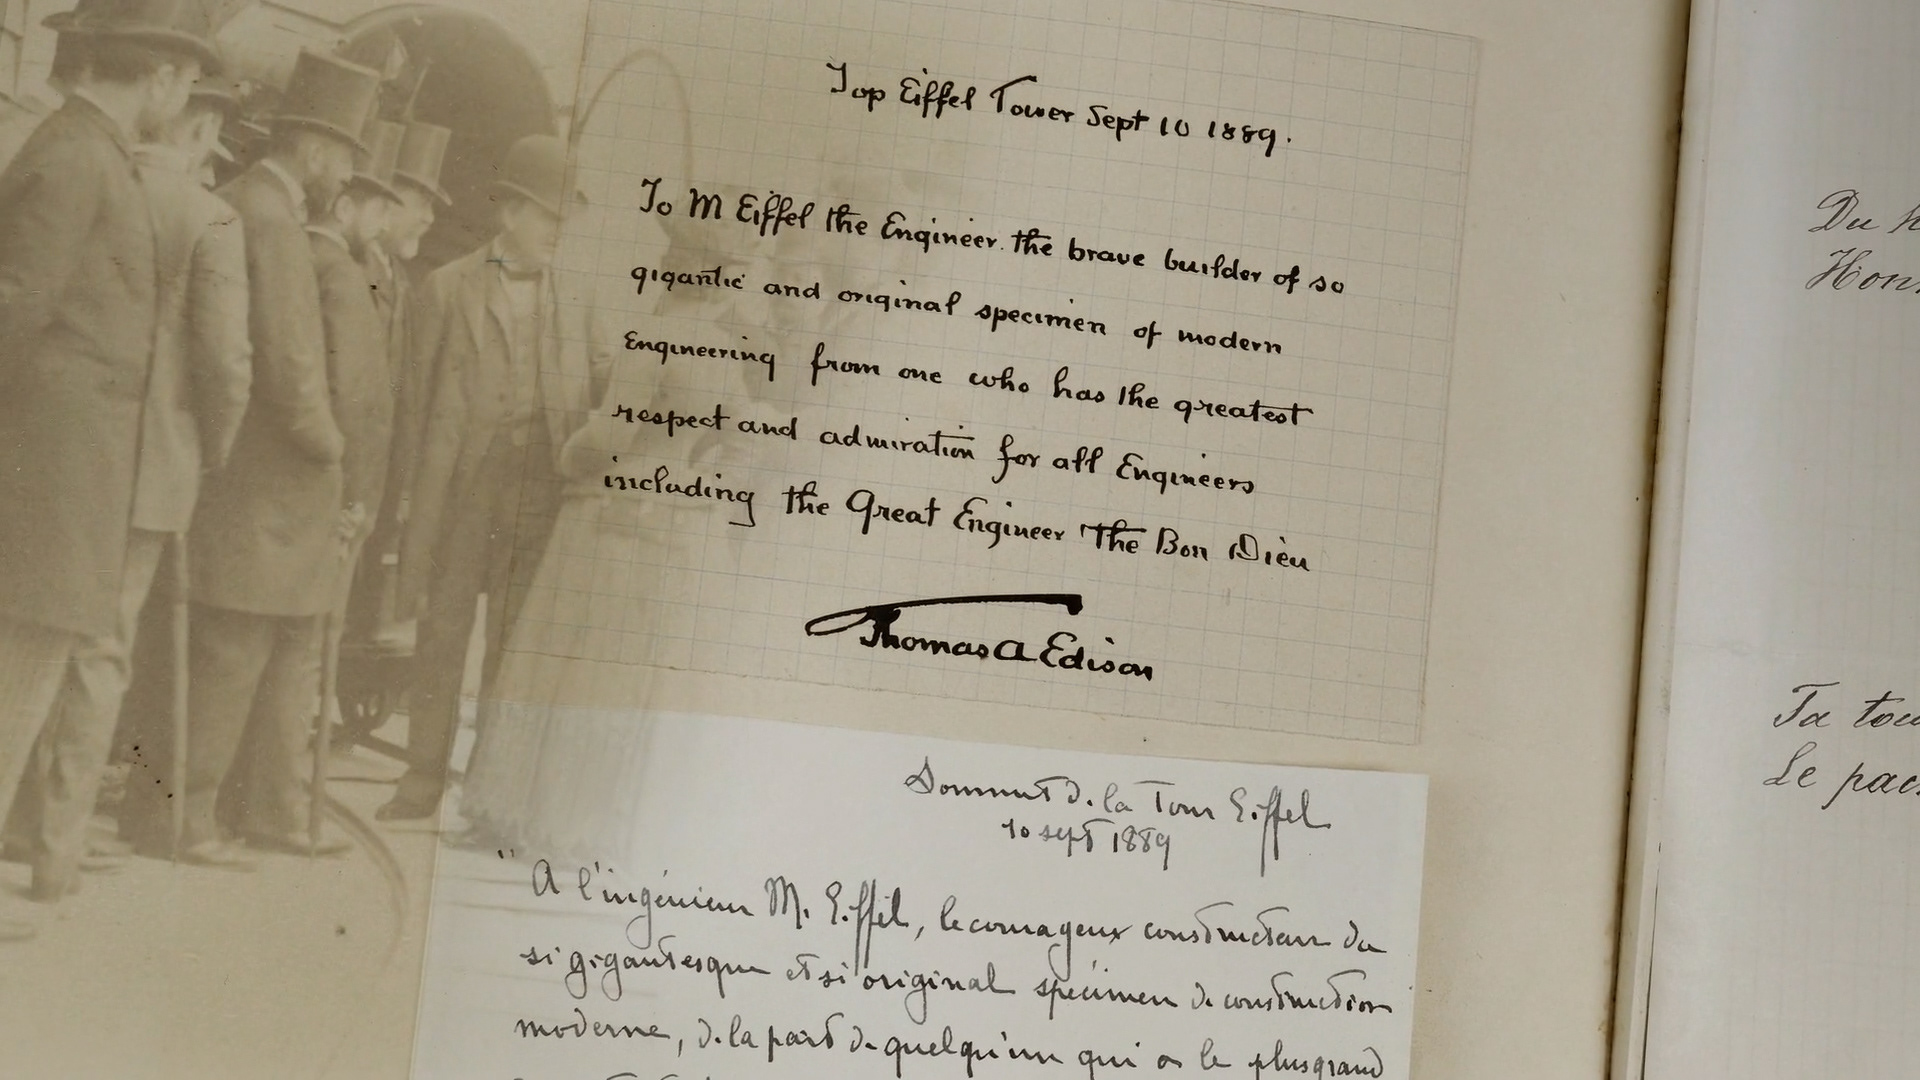 Top Eiffel Tower Sept 10 1889.
To M Eiffel the Engineer. the brave builder of so
gigantic and original specimen of modern
Engineering from one who has the greatest
respect and admiration for all Engineers
including the Great Engineer The Bon Dieu
Thomas A Edison
Sommet de la Tour Eiffel
10 sept 1889
" A l'ingénieur M. Eiffel, le courageux constructeur du
si gigantesque et si original spécimen de construction
moderne, de la part de quelqu'un qui a le plus grand
Du
Hon
Ta tou
Le pac